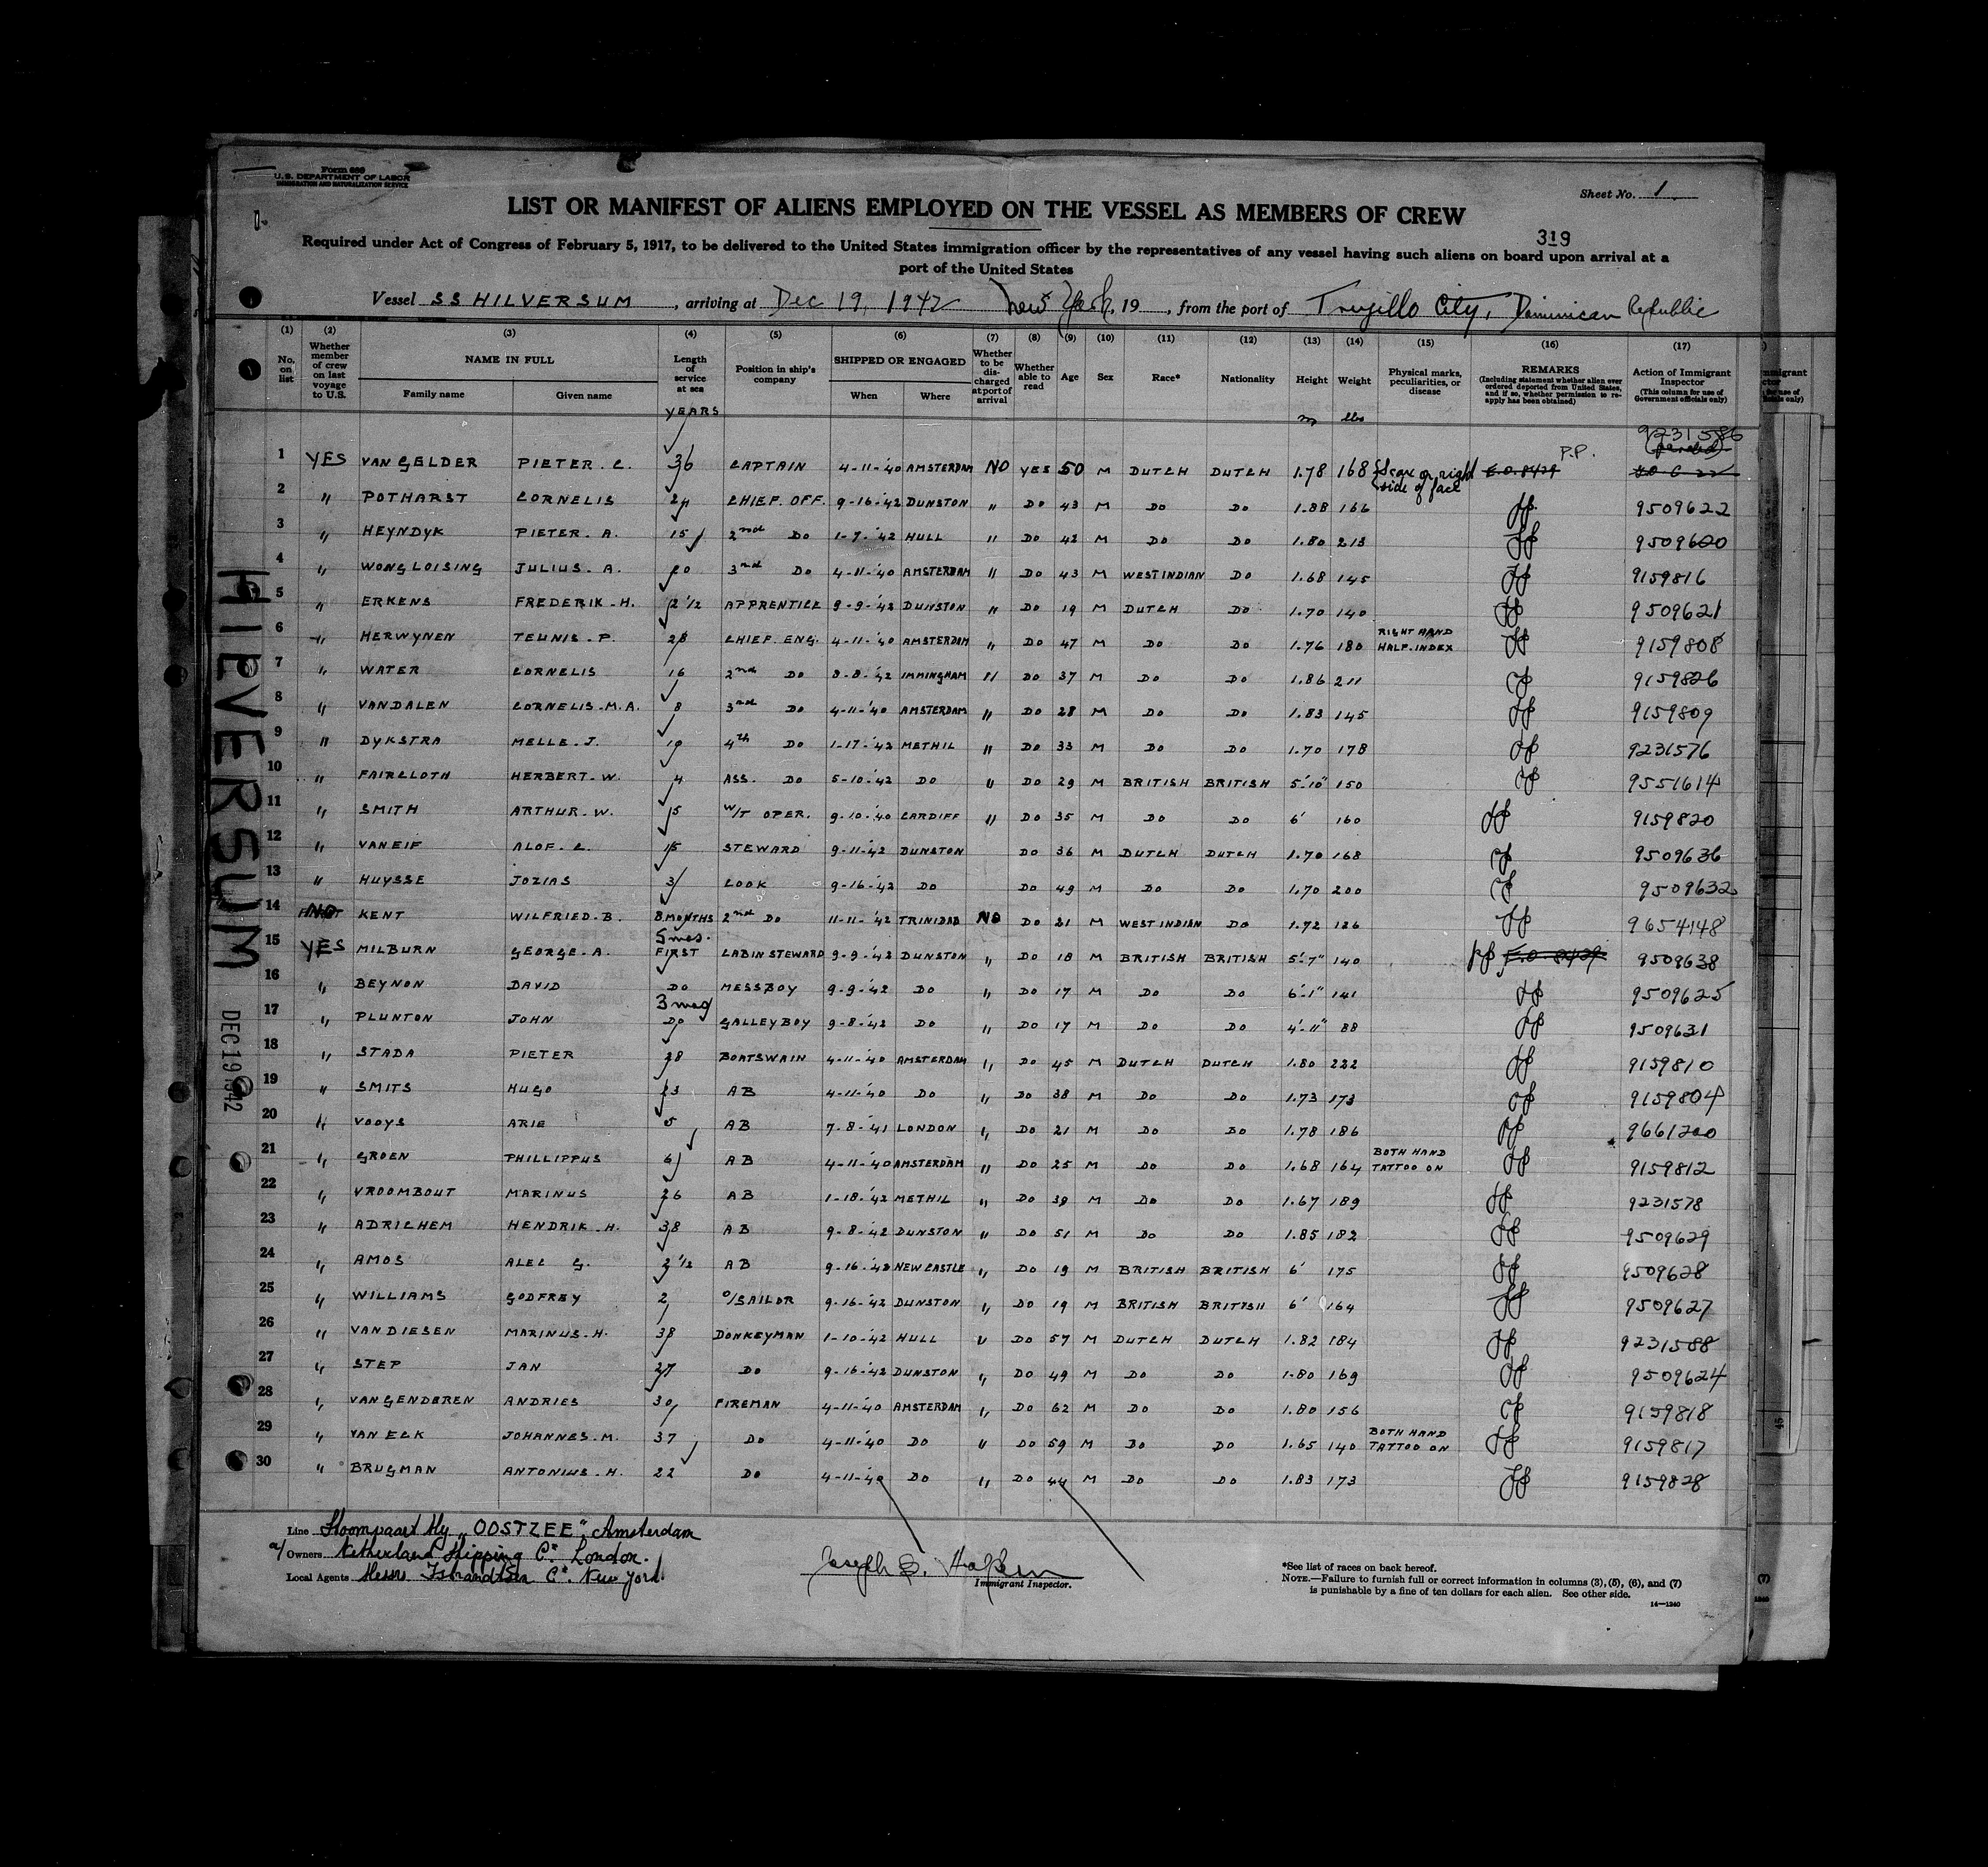 Form 680
U.S. DEPARTMENT OF LABOR
IMMIGRATION AND NATURALIZATION SERVICE
Sheet No. 1
LIST OR MANIFEST OF ALIENS EMPLOYED ON THE VESSEL AS MEMBERS OF CREW
319
Required under Act of Congress of February 5, 1917, to be delivered to the United States immigration officer by the representatives of any vessel having such aliens on board upon arrival at a
port of the United States
Vessel SS HILVERSUM, arriving at Dec 19, 1942 New York, 19, from the port of Trujillo City, Dominican Republic
(1) (2) (3) (4) (5) (6) (7) (8) (9) (10) (11) (12) (13) (14) (15) (16) (17)
No. on list Whether member of crew on last voyage to U.S. NAME IN FULL Family name Given name Length of service at sea Position in ship's company SHIPPED OR ENGAGED When Where Whether to be discharged at port of arrival Whether able to read Age Sex Race* Nationality Height Weight Physical marks, peculiarities, or disease REMARKS (Including statement whether alien ever ordered deported from United States, and if so, whether permission to reapply has been obtained) Action of Immigrant Inspector (This column for use of Government officials only)
YEARS m lbs
9231586
1 YES VAN GELDER PIETER. C. 36 CAPTAIN 4-11-'40 AMSTERDAM NO YES 50 M DUTCH DUTCH 1.78 168 Scar on right side of face P.P. E.O. 8429
2 " POTHARST CORNELIS 24 CHIEF. OFF. 9-16-'42 DUNSTON " DO 43 M DO DO 1.88 166 9509622
3 " HEYNDYK PIETER. A. 15 2nd DO 1-7-'42 HULL " DO 42 M DO DO 1.80 213 9509600
4 " WONGLOISING JULIUS. A. 20 3nd DO 4-11-'40 AMSTERDAM " DO 43 M WESTINDIAN DO 1.68 145 9159816
5 " ERKENS FREDERIK-H. 2 1/2 APPRENTICE 9-9-'42 DUNSTON " DO 19 M DUTCH DO 1.70 140 9509621
6 " HERWYNEN TEUNIS-P. 28 CHIEF. ENG. 4-11-'40 AMSTERDAM " DO 47 M DO DO 1.76 180 RIGHT HAND HALF.INDEX 9159808
7 " WATER CORNELIS 16 2nd DO 8-8-'42 IMMINGHAM " DO 37 M DO DO 1.86 211 9159826
8 " VANDALEN CORNELIS-M.A. 8 3nd DO 4-11-'40 AMSTERDAM " DO 28 M DO DO 1.83 145 9159809
9 " DYKSTRA MELLE-J. 19 4th DO 1-17-'42 METHIL " DO 33 M DO DO 1.70 178 9231576
10 " FAIRCLOTH HERBERT-W. 4 ASS. DO 5-10-'42 DO " DO 29 M BRITISH BRITISH 5'-10" 150 9551614
11 " SMITH ARTHUR-W. 15 W/T OPER. 9-10-'40 CARDIFF " DO 35 M DO DO 6' 160 9159820
12 " VANEIF ALOF-C. 15 STEWARD 9-11-'42 DUNSTON DO 36 M DUTCH DUTCH 1.70 168 9509636
13 " HUYSSE JOZIAS 3 COOK 9-16-'42 DO DO 49 M DO DO 1.70 200 9509632
14 NO KENT WILFRIED-B. 8.MONTHS 2nd DO 11-11-'42 TRINIDAD NO DO 21 M WESTINDIAN DO 1.72 126 9654148
15 YES MILBURN GEORGE-A. 5 mos. FIRST CABIN STEWARD 9-9-'42 DUNSTON " DO 18 M BRITISH BRITISH 5'-7" 140 E.O. 8429 9509638
16 " BEYNON DAVID DO MESSBOY 9-9-'42 DO " DO 17 M DO DO 6'-1" 141 9509625
17 " PLUNTON JOHN 3 mos DO GALLEYBOY 9-8-'42 DO " DO 17 M DO DO 4'-11" 88 9509631
18 " STADA PIETER 28 BOATSWAIN 4-11-'40 AMSTERDAM " DO 45 M DUTCH DUTCH 1.80 222 9159810
19 " SMITS HUGO 23 AB 4-11-'40 DO " DO 38 M DO DO 1.73 173 9159804
20 " VOOYS ARIE 5 AB 7-8-'41 LONDON " DO 21 M DO DO 1.78 186 9661200
21 " GROEN PHILLIPPUS 6 AB 4-11-'40 AMSTERDAM " DO 25 M DO DO 1.68 164 BOTH HAND TATTOO ON 9159812
22 " VROOMBOUT MARINUS 26 AB 1-18-'42 METHIL " DO 39 M DO DO 1.67 189 9231578
23 " ADRICHEM HENDRIK-H. 38 AB 9-8-'42 DUNSTON " DO 51 M DO DO 1.85 182 9509629
24 " AMOS ALEC G. 2 1/2 AB 9-16-'42 NEWCASTLE " DO 19 M BRITISH BRITISH 6' 175 9509628
25 " WILLIAMS GODFREY 2 O/SAILOR 9-16-'42 DUNSTON " DO 19 M BRITISH BRITISH 6' 164 9509627
26 " VAN DIESEN MARINUS-H. 38 DONKEYMAN 1-10-'42 HULL " DO 57 M DUTCH DUTCH 1.82 184 9231588
27 " STEP JAN 27 DO 9-16-'42 DUNSTON " DO 49 M DO DO 1.80 169 9509624
28 " VANGENDEREN ANDRIES 30 FIREMAN 4-11-'40 AMSTERDAM " DO 62 M DO DO 1.80 156 9159818
29 " VAN ECK JOHANNES-M. 37 DO 4-11-'40 DO " DO 59 M DO DO 1.65 140 BOTH HAND TATTOO ON 9159817
30 " BRUGMAN ANTONIUS-H. 22 DO 4-11-'40 DO " DO 44 M DO DO 1.83 173 9159828
HILVERSUM
DEC 19 1942
Line Stoomvaart My "OOSTZEE", Amsterdam
a/ Owners Netherland Shipping Co. London.
Local Agents Messrs. Co. New York
Joseph S.
Immigrant Inspector.
*See list of races on back hereof.
NOTE.—Failure to furnish full or correct information in columns (3), (5), (6), and (7)
is punishable by a fine of ten dollars for each alien. See other side.
14—1240